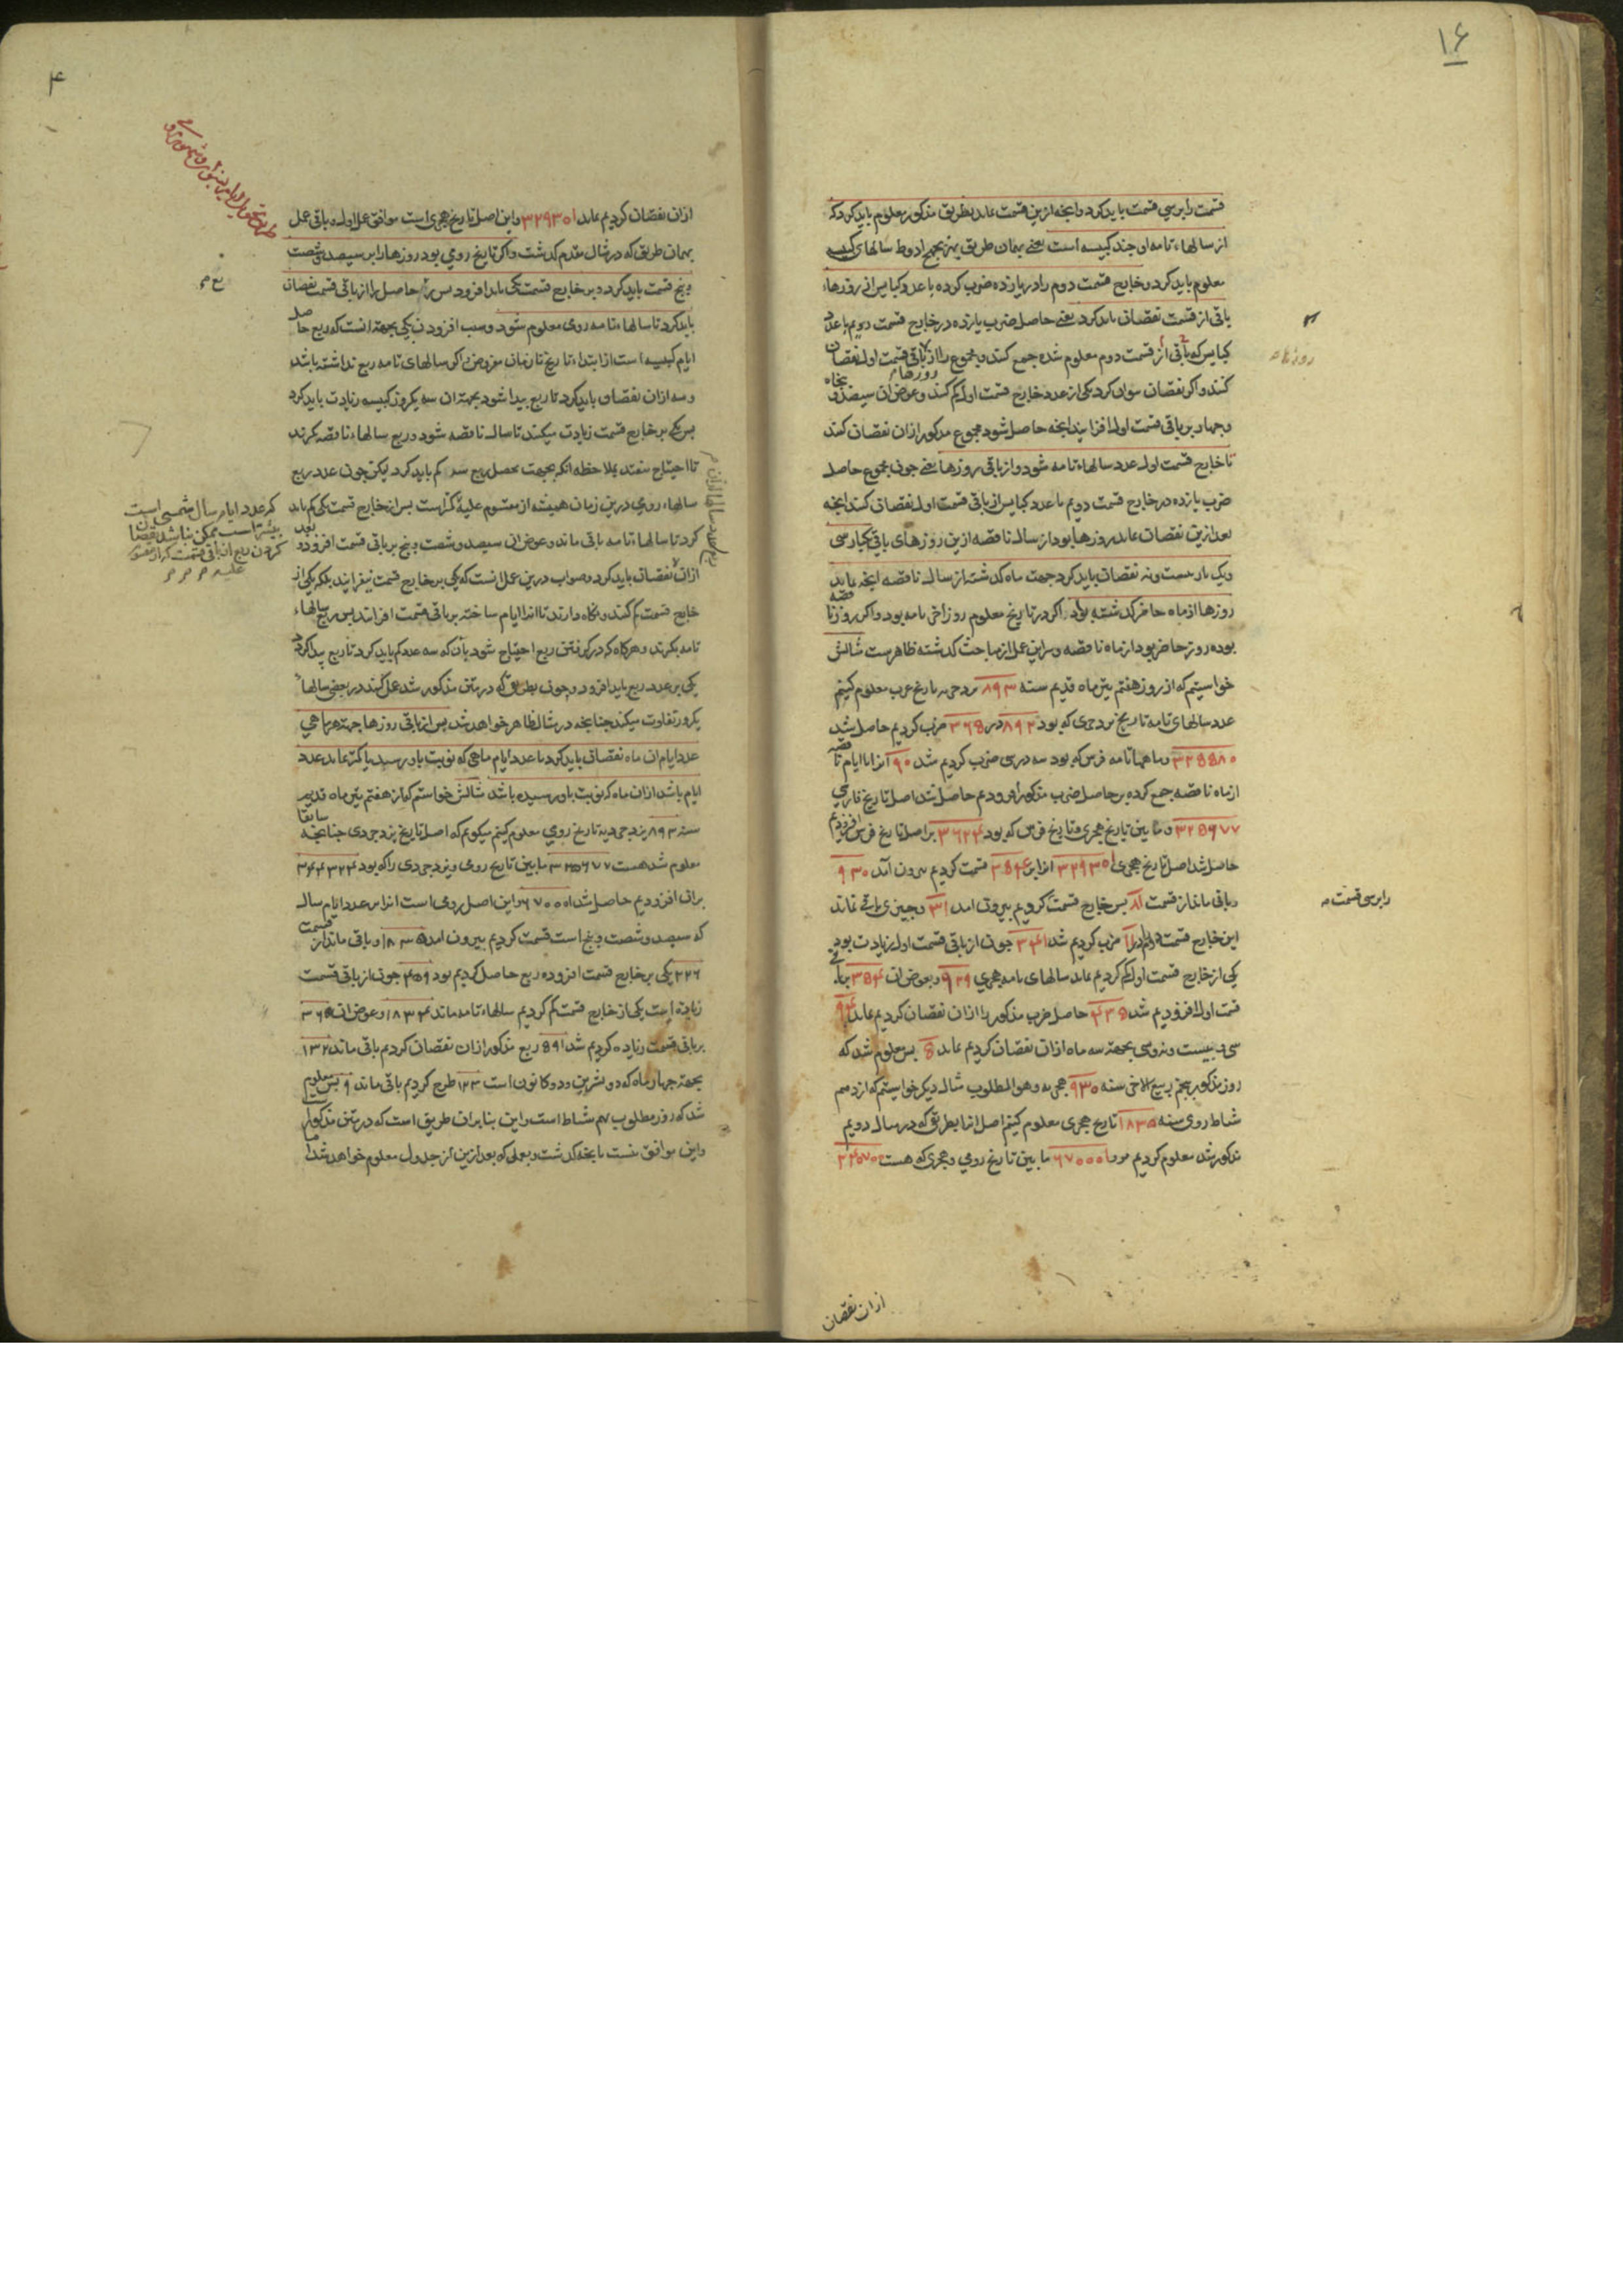 ۱۶
قسمت را بر سی قسمت باید کرد و آنچه ازین قسمت بماند بطریق مذکور معلوم باید کرد که
از سالهاء تامه او چند کبیسه است یعنی بهمان طریق بهزیجهح ادوط سالهای کبیسه
معلوم باید کرد و خارج قسمت دوم را در یازده ضرب کرده با عدد کبایس از روزهاء
باقی از قسمت نقصان باید کرد یعنی حاصل ضرب یازده در خارج قسمت دویم با عدد
کبایس که باقی از قسمت دوم معلوم شده جمع کنند و مجموع را از باقی قسمت اول نقصان
کنند و اگر نقصان نتوان کرد یکی از عدد خارج قسمت اول کم کنند و عوض ان سیصد و پنجاه
و چهار بر باقی قسمت اول افزایند آنچه حاصل شود مجموع مذکور از ان نقصان کنند
تا خارج قسمت اول عدد سالهاء تامه شود و از باقی روزها یعنی چون مجموع حاصل
ضرب یازده در خارج قسمت دویم با عدد کبایس از باقی قسمت اول نقصان کنند آنچه
بعد ازین نقصان بماند روزها بود از سال ناقصه ازین روزهای باقی یکبار سی
و یک بار بیست و نه نقصان باید کرد جهت ماه گذشته از سال ناقصه آنچه بماند
روزها از ماه حاضر گذشته بود اگر در تاریخ معلوم روز آخر تامه بود و اگر روز نا
قصه
بوده روز حاضر بود از ماه ناقصه و سر این عمل از مباحث گذشته ظاهرست مثالش
خواستیم که از روز هفتم تیر ماه قدیم سنه ۸۹۳ یزدجردیه تاریخ عرب معلوم کنیم
عدد سالهای تامه تاریخ یزدجردی که بود ۸۹۲ در ۳۶۵ ضرب کردیم حاصل شد
۳۲۵۵۸۰ و ماههاء تامه فرس که بود سه در سی ضرب کردیم شد ۹۰ انرا با ایام نا
قصه
از ماه ناقصه جمع کرده بر حاصل ضرب مذکور افزودیم حاصل شد اصل تاریخ فارسی
۳۲۵۶۷۷ و ما بین تاریخ هجری و تاریخ فرس که بود ۳۶۲۴ بر اصل تاریخ فرس افزودیم
حاصل شد اصل تاریخ هجری ۳۲۹۳۰۱ انرا بر ۳۵۴ قسمت کردیم بیرون آمد ۹۳۰
و باقی ماند از قسمت ۸۱ پس خارج قسمت کردیم بیرون امد ۳۱ و چیزی باقی نماند
این خارج قسمت دویم را در ۱۱ ضرب کردیم شد ۳۴۱ چون از باقی قسمت اول زیادت بود
یکی از خارج قسمت اول کم کردیم بماند سالهای تامه هجری ۹۲۹ و بعوض ان ۳۵۴ بر باقی
قسمت اول افزودیم شد ۴۳۵ حاصل ضرب مذکور را از ان نقصان کردیم بماند ۹۴
سی و بیست و نه و سی بجهته سه ماه از ان نقصان کردیم بماند ۵ پس معلوم شد که
روز مذکور پنجم ربیع الاخر سنه ۹۳۰ هجریه وهو المطلوب مثال دیگر خواستیم که از دهم
شباط رومی سنه ۱۸۳۵ تاریخ هجری معلوم کنیم اصل انرا بطریق که در مثال دویم
مذکور شد معلوم کردیم بود ۶۷۰۰۰۱ ما بین تاریخ رومی و هجری که هست ۳۴۰۷۰۰
را بر سی قسمت
روزهاء
از ان نقصان
۴
از ان نقصان کردیم بماند ۳۲۹۳۰۱ و این اصل تاریخ هجری است موافق عمل اول و باقی عمل
بهمان طریق که در مثال مقدم گذشت و اگر تاریخ رومی بود روزها را بر سیصد و شصت
و پنج قسمت باید کرد و بر خارج قسمت یکی باید افزود پس حاصل را از باقی قسمت نقصان
باید کرد تا سالهاء تامه رومی معلوم شود و سبب افزودن یکی بجهته انست که ربع حاصل
ایام کبیسه است از ابتداء تاریخ تا زمان مفروض و اگر سالهای تامه ربع نداشته باشد
و سه از ان نقصان باید کرد تا ربع پیدا شود بجهته ان سه یکروز کبیسه زیادت باید کرد
پس یکی بر خارج قسمت زیادت میکنند تا سال ناقصه شود و ربع سالهاء ناقصه گیرند
تا احتیاج نیفتد بملاحظه انکه بجهت تحصیل ربع سه کم باید کرد لیکن چون عدد ربع
سالهاء رومی درین زمان همیشه از مقسوم علیه کمتر است پس از خارج قسمت یکی کم باید
کرد تا سالهاء تامه باقی ماند و عوض ان سیصد و شصت و پنج بر باقی قسمت افزود و بعد
از ان نقصان باید کرد و صواب درین عمل انست که یکی بر خارج قسمت نیفزایند بلکه یکی از
خارج قسمت کم کنند و نگاه دارند تا انرا ایام ساخته بر باقی قسمت افزایند پس ربع سالهاء
تامه بگیرند و هرگاه که در گرفتن ربع احتیاج شود بان که سه عدد کم باید کرد تا ربع پیدا گردد
یکی بر عدد ربع باید افزود و چون بطریقی که در متن مذکور شد عمل کنند در بعضی سالها
یکروز تفاوت میکند چنانچه در مثال ظاهر خواهد شد پس از باقی روزها جهته هر ماهی
عدد ایام ان ماه نقصان باید کرد تا عدد ایام ماهی که نوبت باو رسد یا کمتر بماند عدد
ایام باشد از ان ماه که نوبت باو رسیده باشد مثالش خواستیم که از هفتم تیر ماه قدیم
سنه ۸۹۳ یزدجردیه تاریخ رومی معلوم کنیم میگویم که اصل تاریخ یزدجردی چنانچه سابقا
معلوم شد هست ۳۲۵۶۷۷ ما بین تاریخ رومی و یزدجردی را که بود ۳۴۴۳۲۴
بران افزودیم حاصل شد ۶۷۰۰۰۱ و این اصل رومی است انرا بر عدد ایام سال
که سیصد و شصت و پنج است قسمت کردیم بیرون امد ۱۸۳۵ و باقی ماند از قسمت
۲۲۶ یکی بر خارج قسمت افزوده ربع حاصل کردیم بود ۴۵۹ چون از باقی قسمت
زیاده است یکی از خارج قسمت کم کردیم سالهاء تامه ماند ۱۸۳۴ و عوض ان ۳۶۵
بر باقی قسمت زیاده کردیم شد ۵۹۱ ربع مذکور از ان نقصان کردیم باقی ماند ۱۳۲
بجهته چهار ماه که دو تشرین و دو کانون است ۱۲۳ طرح کردیم باقی ماند ۹ پس معلوم
شد که روز مطلوب نهم شباط است و این بنا بران طریق است که در متن مذکور
و این موافق نیست با آنچه گذشت و بعملی که بعد ازین از جدول معلوم خواهد شد اما
که عدد ایام سال شمسی است
بیشتر است ممکن نباشد نقصان
کردن ربع از باقی قسمت که از مقسوم
علیه
ربع عدد سالها از ان